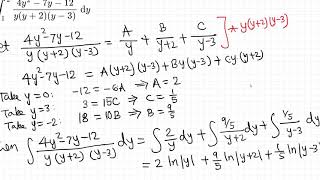 ∫ 4y²-7y-12 / y(y+2)(y-3) dy
4y²-7y-12 / y(y+2)(y-3) = A/y + B/y+2 + C/y-3 ] * y(y+2)(y-3)
4y²-7y-12 = A(y+2)(y-3) + By(y-3) + Cy(y+2)
Take y=0: -12 = -6A ⇒ A = 2
Take y=3: 3 = 15C ⇒ C = 1/5
Take y=-2: 18 = 10B ⇒ B = 9/5
∫ 4y²-7y-12 / y(y+2)(y-3) dy = ∫ 2/y dy + ∫ 9/5 / y+2 dy + ∫ 1/5 / y-3 dy
= 2 ln|y| + 9/5 ln|y+2| + 1/5 ln|y-3